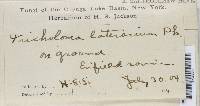 Fungi of the Cayuga Lake Basin, New York.
Herbarium of H. S. Jackson
Tricholoma laterarium Pk.
on ground
Enfield ravine.
H.S.J. July 30. 04